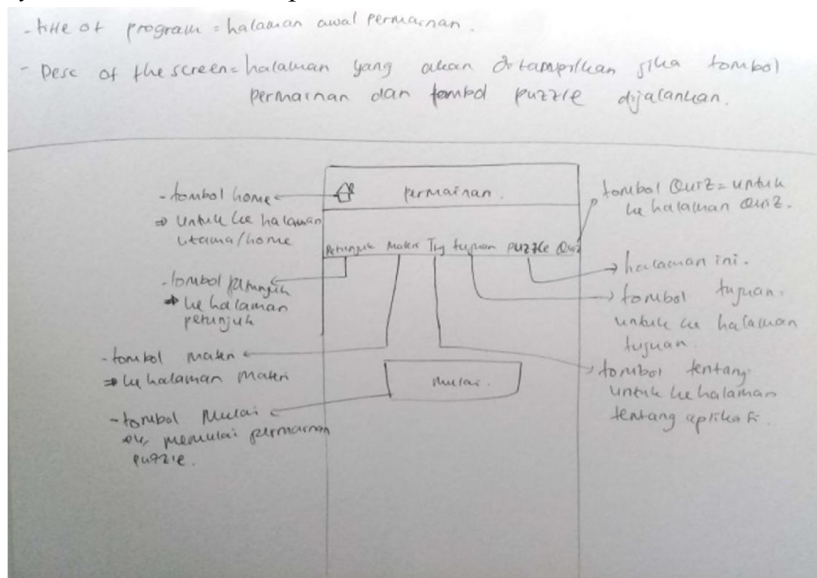 - title of program = halaman awal permainan.
- Desc of the screen = halaman yang akan ditampilkan jika tombol
permainan dan tombol puzzle dijalankan.
- tombol home
⇒ untuk ke halaman
utama/home
- tombol petunjuk
⇒ ke halaman
petunjuk
- tombol materi
⇒ ke halaman materi
- tombol mulai
memulai permainan
puzzle.
permainan.
Petunjuk Materi Ttg tujuan puzzle Quiz
mulai.
tombol Quiz = untuk
ke halaman Quiz.
halaman ini.
tombol tujuan.
untuk ke halaman
tujuan.
tombol tentang.
untuk ke halaman
tentang aplikasi.